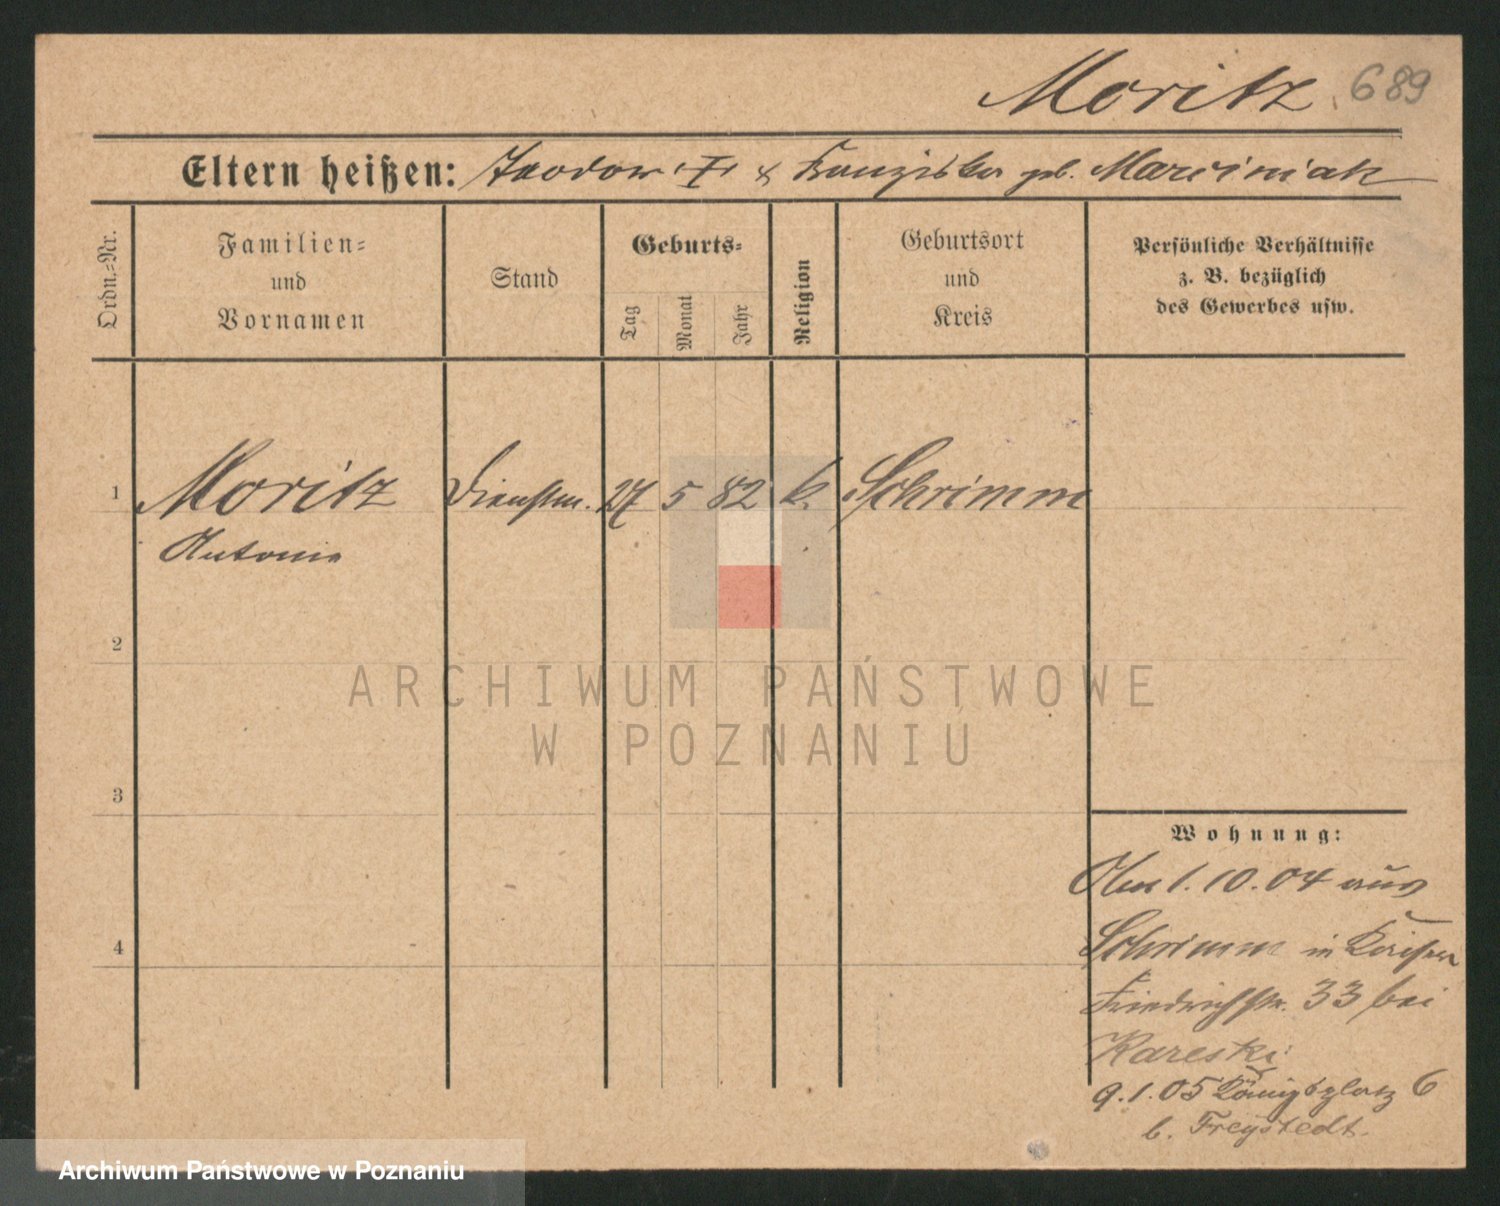 Moritz 689
Eltern heißen: Teodor † & Franziska geb. Marciniak
Ordn.-Nr.
Familien- und Vornamen
Stand
Geburts-
Tag
Monat
Jahr
Religion
Geburtsort und Kreis
Persönliche Verhältnisse
z. B. bezüglich
des Gewerbes usw.
1 Moritz Dienstm. 27 5 82 k. Schrimm
Antonie
2
ARCHIWUM PAŃSTWOWE
W POZNANIU
3
Wohnung:
1.10.04 aus
4
Schrimm in Kaiser
Friedrichstr. 33 bei
Kareski
9.1.05 Königsplatz 6
b. Freystedt.
Archiwum Państwowe w Poznaniu